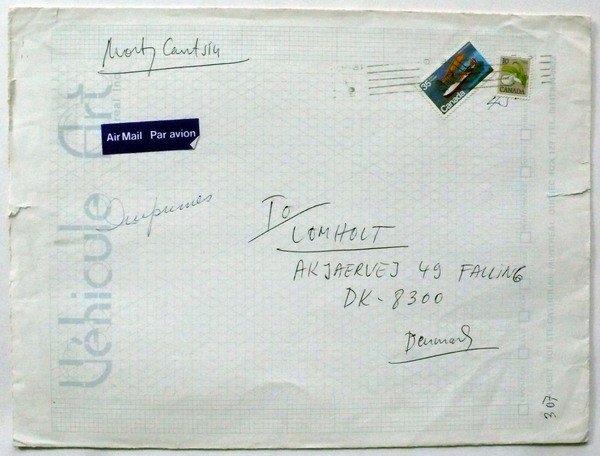 Monty Cantsin
Air Mail Par avion
35
Canada
10
CANADA
45
Imprimés
Véhicule Art
To
LOMHOLT
AKJAERVEJ 49 FALLING
DK-8300
Denmark
307